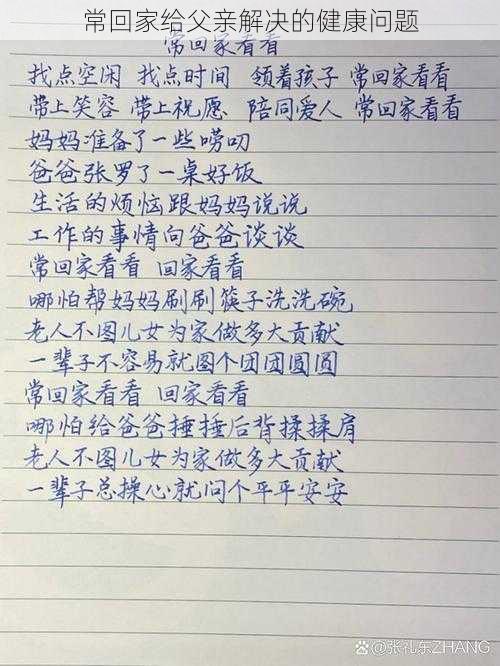 常回家给父亲解决的健康问题
常回家看看
找点空闲 找点时间 领着孩子 常回家看看
带上笑容 带上祝愿 陪同爱人 常回家看看
妈妈准备了一些唠叨
爸爸张罗了一桌好饭
生活的烦恼跟妈妈说说
工作的事情向爸爸谈谈
常回家看看 回家看看
哪怕帮妈妈刷刷筷子洗洗碗
老人不图儿女为家做多大贡献
一辈子不容易就图个团团圆圆
常回家看看 回家看看
哪怕给爸爸捶捶后背揉揉肩
老人不图儿女为家做多大贡献
一辈子总操心就问个平平安安
@张礼东ZHANG